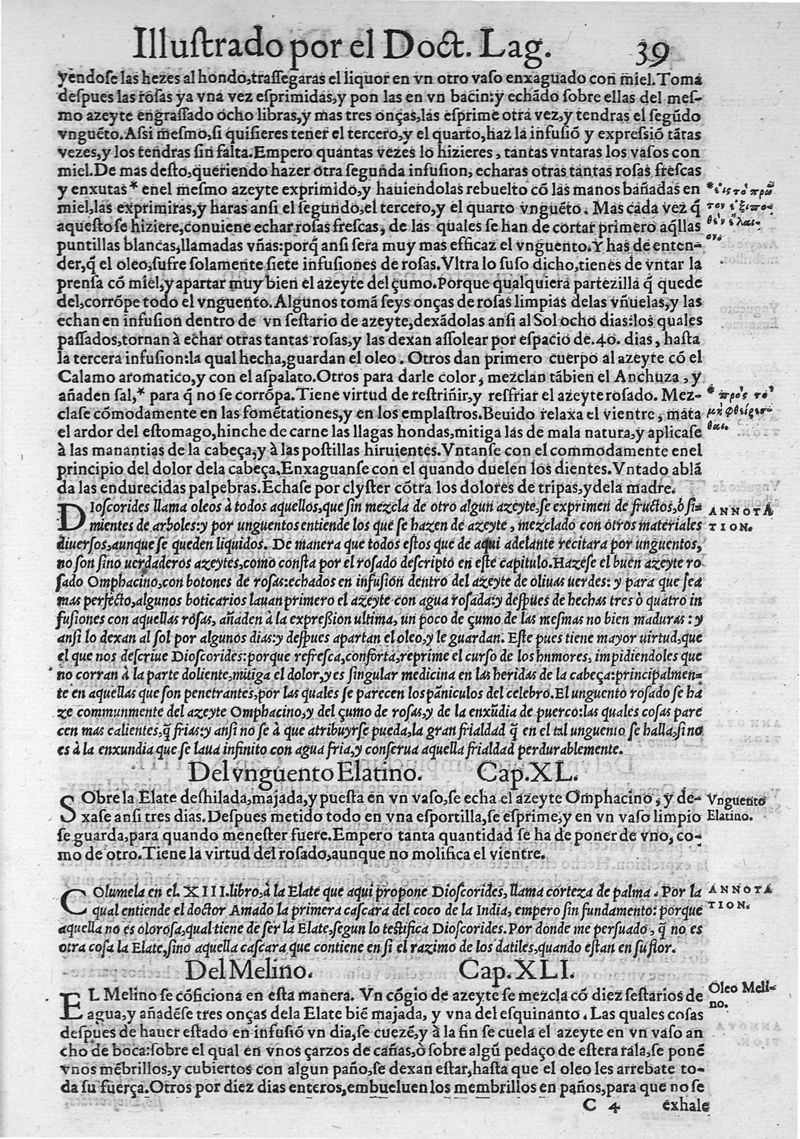 Illuſtrado por el Doct. Lag. 39
yẽndoſe las hezes al hondo, traſſegaras el liquor en vn otro vaſo enxaguado con miel. Toma
deſpues las roſas ya vna vez eſprimidas, y pon las en vn bacin: y echãdo ſobre ellas del meſ-
mo azeyte engraſſado ocho libras, y mas tres onças, las eſprime otra vez, y tendras el ſegũdo
vnguẽto. Aſsi meſmo, ſi quiſieres tener el tercero, y el quarto, haz la infuſiõ y expreſsiõ tãtas
vezes, y los tendras ſin falta. Empero quantas vezes lo hizieres, tantas vntaras los vaſos con
miel. De mas deſto, queriendo hazer otra ſegunda infuſion, echaras otras tantas roſas freſcas
y enxutas* enel meſmo azeyte exprimido, y hauiendolas rebuelto cõ las manos bañadas en
miel, las exprimiras, y haras anſi el ſegundo, el tercero, y el quarto vnguẽto. Mas cada vez q̃
aqueſto ſe hiziere, conuiene echar roſas freſcas, de las quales ſe han de cortar primero aq̃llas
puntillas blancas, llamadas vñas: porq̃ anſi ſera muy mas efficaz el vnguento. Y has de enten-
der, q̃ el oleo, ſufre ſolamente ſiete infuſiones de roſas. Vltra lo ſuſo dicho, tienes de vntar la
prenſa cõ miel, y apartar muy bien el azeyte del çumo. Porque qualquiera partezilla q̃ quede
del, corrõpe todo el vnguento. Algunos tomã ſeys onças de roſas limpias delas vñuelas, y las
echan en infuſion dentro de vn ſeſtario de azeyte, dexãdolas anſi al Sol ocho dias: los quales
paſſados, tornan à echar otras tantas roſas, y las dexan aſſolear por eſpacio de .40. dias, haſta
la tercera infuſion: la qual hecha, guardan el oleo. Otros dan primero cuerpo al azeyte cõ el
Calamo aromatico, y con el aſpalato. Otros para darle color, mezclan tãbien el Anchuza, y
añaden ſal,* para q̃ no ſe corrõpa. Tiene virtud de reſtriñir, y reſfriar el azeyte roſado. Mez-
claſe cõmodamente en las fomẽtationes, y en los emplaſtros. Beuido relaxa el vientre, mata
el ardor del eſtomago, hinche de carne las llagas hondas, mitiga las de mala natura, y aplicaſe
à las manantias de la cabeça, y à las poſtillas hiruientes. Vntanſe con el commodamente enel
principio del dolor dela cabeça. Enxaguanſe con el quando duelen los dientes. Vntado ablã
da las endurecidas palpebras. Echaſe por clyſter cõtra los dolores de tripas, y dela madre.
ANNOTA
TION.
DIoſcorides llama oleos à todos aquellos, que ſin mezcla de otro algun azeyte, ſe exprimen de fructos, ò ſi-
mientes de arboles: y por unguentos entiende los que ſe hazen de azeyte, mezclado con otros materiales
diuerſos, aunque ſe queden liquidos. De manera que todos eſtos que de aqui adelante recitara por unguentos,
no ſon ſino uerdaderos azeytes, como conſta por el roſado deſcripto en eſte capitulo. Hazeſe el buen azeyte ro
ſado Omphacino, con botones de roſas: echados en infuſion dentro del azeyte de oliuas uerdes: y para que ſea
mas perfecto, algunos boticarios lauan primero el azeyte con agua roſada: y deſpues de hechas tres ò quatro in
fuſiones con aquellas roſas, añaden à la expreſsion ultima, un poco de çumo de las meſmas no bien maduras: y
anſi lo dexan al ſol por algunos dias: y deſpues apartan el oleo, y le guardan. Eſte pues tiene mayor uirtud, que
el que nos deſcriue Dioſcorides: porque refreſca, conforta, reprime el curſo de los humores, impidiendoles que
no corran à la parte doliente, mitiga el dolor, y es ſingular medicina en las heridas de la cabeça: principalmen-
te en aquellas que ſon penetrantes, por las quales ſe parecen los pãniculos del celebro. El unguento roſado ſe ha
ze communmente del azeyte Omphacino, y del çumo de roſas, y de la enxũdia de puerco: las quales coſas pare
cen mas calientes, q̃ frias: y anſi no ſe à que atribuyrſe pueda, la gran frialdad q̃ en el tal unguento ſe halla, ſino
es à la enxundia que ſe laua infinito con agua fria, y conſerua aquella frialdad perdurablemente.
Del vnguento Elatino. Cap. XL.
Vnguento
Elatino.
SObre la Elate deshilada, majada, y pueſta en vn vaſo, ſe echa el azeyte Omphacino, y de-
xaſe anſi tres dias. Deſpues metido todo en vna eſportilla, ſe eſprime, y en vn vaſo limpio
ſe guarda, para quando meneſter fuere. Empero tanta quantidad ſe ha de poner de vno, co-
mo de otro. Tiene la virtud del roſado, aunque no molifica el vientre.
ANNOTA
TION.
COlumela en el. XIII. libro, à la Elate que aqui propone Dioſcorides, llama corteza de palma. Por la
qual entiende el doctor Amado la primera caſcara del coco de la India, empero ſin fundamento: porque
aquella no es oloroſa, qual tiene de ſer la Elate, ſegun lo teſtifica Dioſcorides. Por donde me perſuado, q̃ no es
otra coſa la Elate, ſino aquella caſcara que contiene en ſi el razimo de los datiles, quando eſtan en ſu flor.
Del Melino. Cap. XLI.
Oleo Meli-
no.
EL Melino ſe cõficiona en eſta manera. Vn cõgio de azeyte ſe mezcla cõ diez ſeſtarios de
agua, y añadẽſe tres onças dela Elate biẽ majada, y vna del eſquinanto. Las quales coſas
deſpues de hauer eſtado en infuſiõ vn dia, ſe cuezẽ, y à la fin ſe cuela el azeyte en vn vaſo an
cho de boca: ſobre el qual en vnos çarzos de cañas, ò ſobre algũ pedaço de eſtera rala, ſe ponẽ
vnos mẽbrillos, y cubiertos con algun paño, ſe dexan eſtar, haſta que el oleo les arrebate to-
da ſu fuerça. Otros por diez dias enteros, embueluen los membrillos en paños, para que no ſe
C 4 exhale